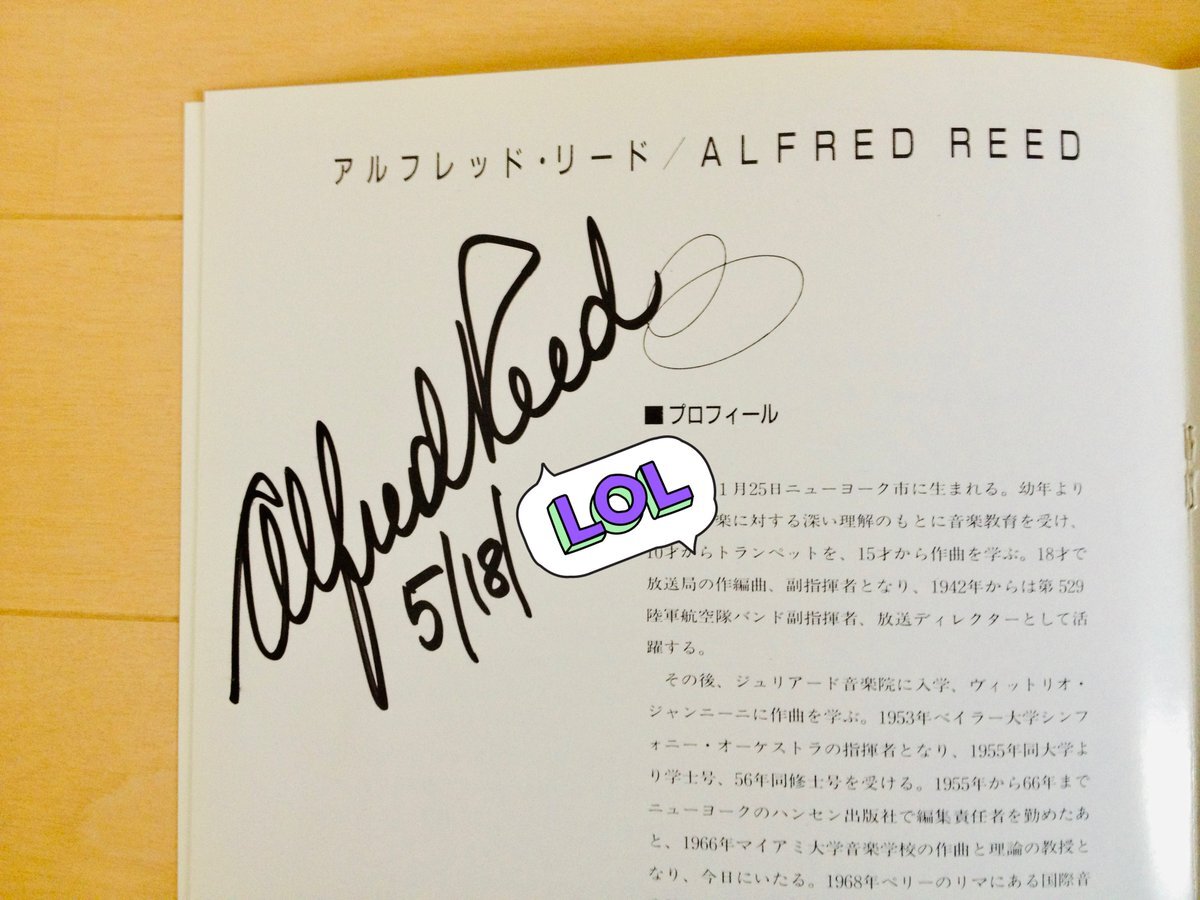 アルフレッド・リード／ALFRED REED
Alfred Reed
5/18/
LOL
■プロフィール
1月25日ニューヨーク市に生まれる。幼年より
楽に対する深い理解のもとに音楽教育を受け、
10才からトランペットを、15才から作曲を学ぶ。18才で
放送局の作編曲、副指揮者となり、1942年からは第529
陸軍航空隊バンド副指揮者、放送ディレクターとして活
躍する。
その後、ジュリアード音楽院に入学、ヴィットリオ・
ジャンニーニに作曲を学ぶ。1953年ベイラー大学シンフ
ォニー・オーケストラの指揮者となり、1955年同大学よ
り学士号、56年同修士号を受ける。1955年から66年まで
ニューヨークのハンセン出版社で編集責任者を勤めたあ
と、1966年マイアミ大学音楽学校の作曲と理論の教授と
なり、今日にいたる。1968年ペリーのリマにある国際音